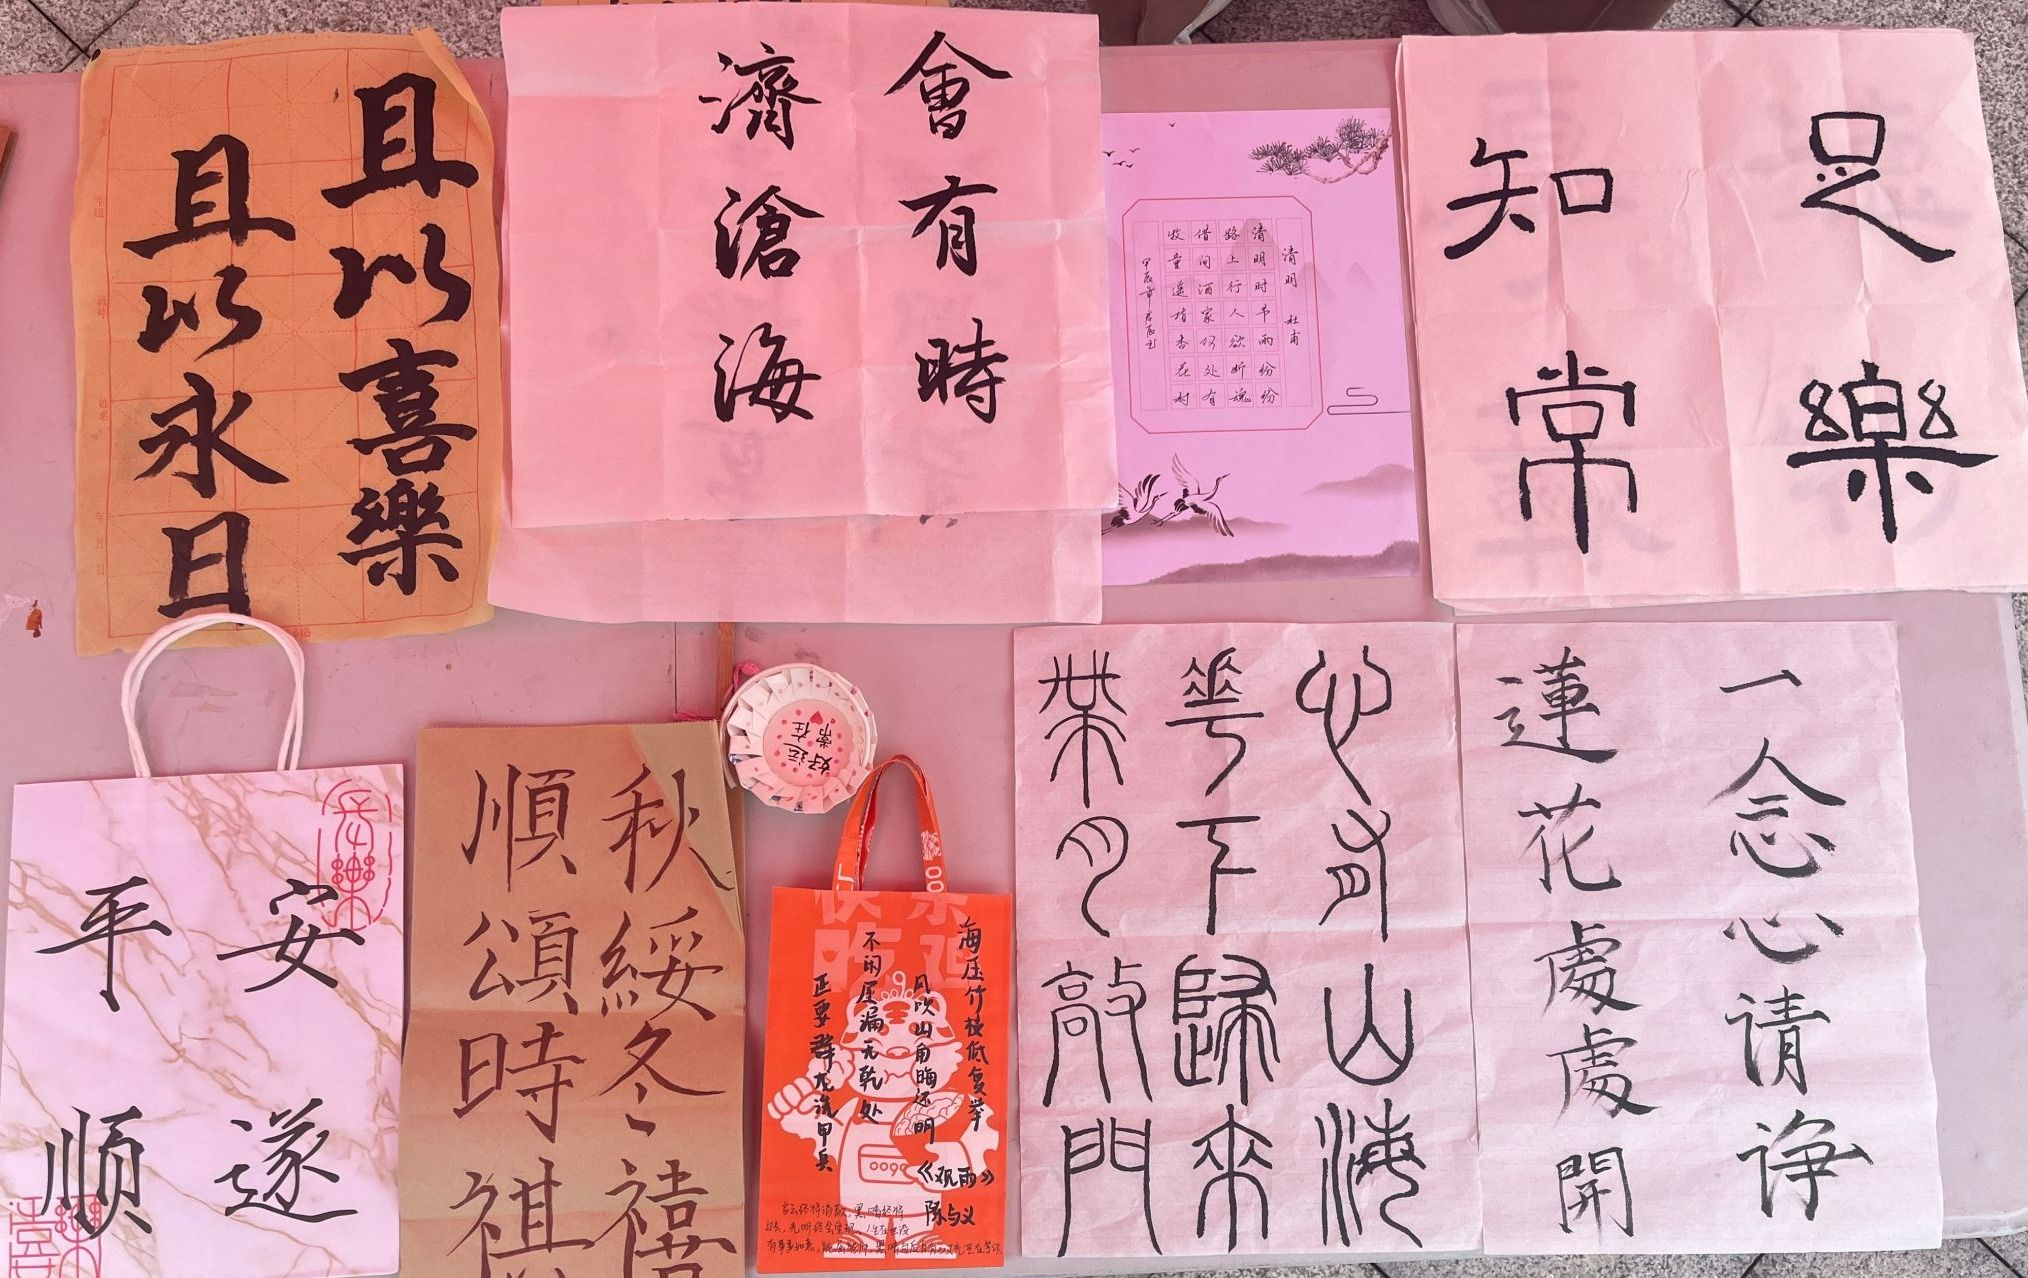 且以喜樂
且以永日
會有時
濟滄海
清明 杜甫
清明时节雨纷纷
路上行人欲断魂
借问酒家何处有
牧童遥指杏花村
足樂
知常
安遂
平順
秋綏冬禧
順頌時祺
好运
常在
海压竹枝低复举
风吹山角晦还明
不闲屋漏无乾处
正要群龙洗甲兵
《观雨》
陈与义
心有山海
花下歸來
帶月敲門
一念心请诤
蓮花處處開